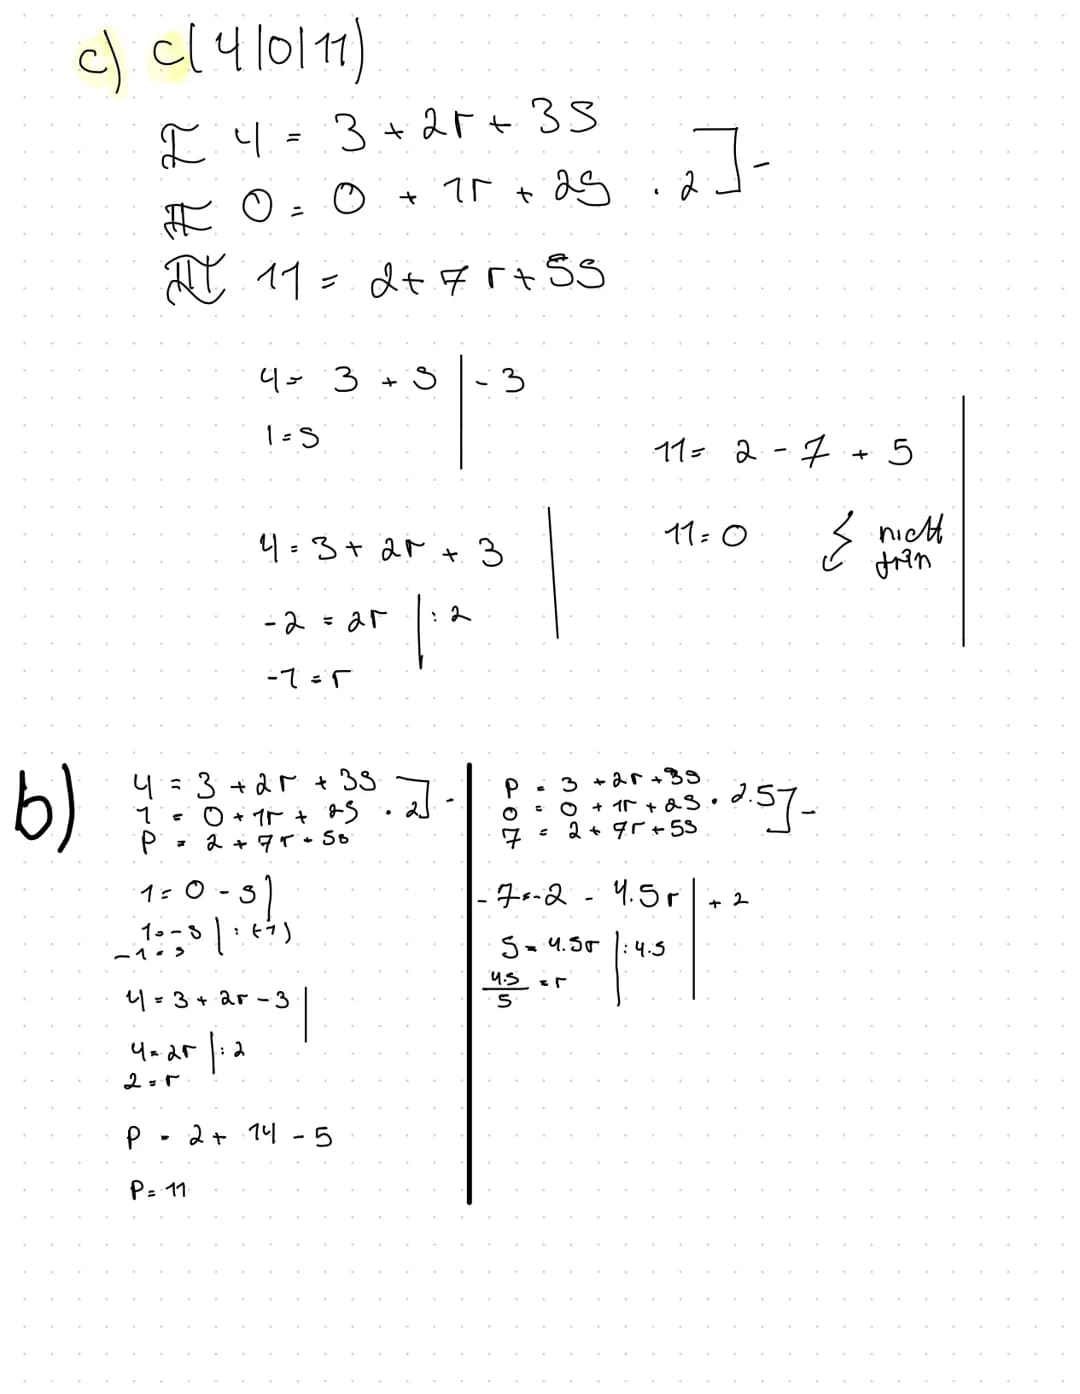 c) C(4|0|11)
I 4 = 3 + 2r + 3s
II 0 = 0 + 1r + 2s · 2 ] -
III 11 = 2 + 7r + 5s
4 = 3 + s | - 3
1 = s
4 = 3 + 2r + 3 |
-2 = 2r | : 2
-1 = r
11 = 2 - 7 + 5
11 = 0 ↯ nicht
drin
b)
4 = 3 + 2r + 3s
1 = 0 + 1r + 2s · 2 ] -
P = 2 + 7r + 5s
1 = 0 - s |
1 = -s | : (-1)
-1 = s
4 = 3 + 2r - 3 |
4 = 2r | : 2
2 = r
P = 2 + 14 - 5
P = 11
P = 3 + 2r + 3s
0 = 0 + 1r + 2s · 2.5 ] -
7 = 2 + 7r + 5s
-7 = -2 - 4.5r | + 2
5 = 4.5r | : 4.5
4.5/5 = r